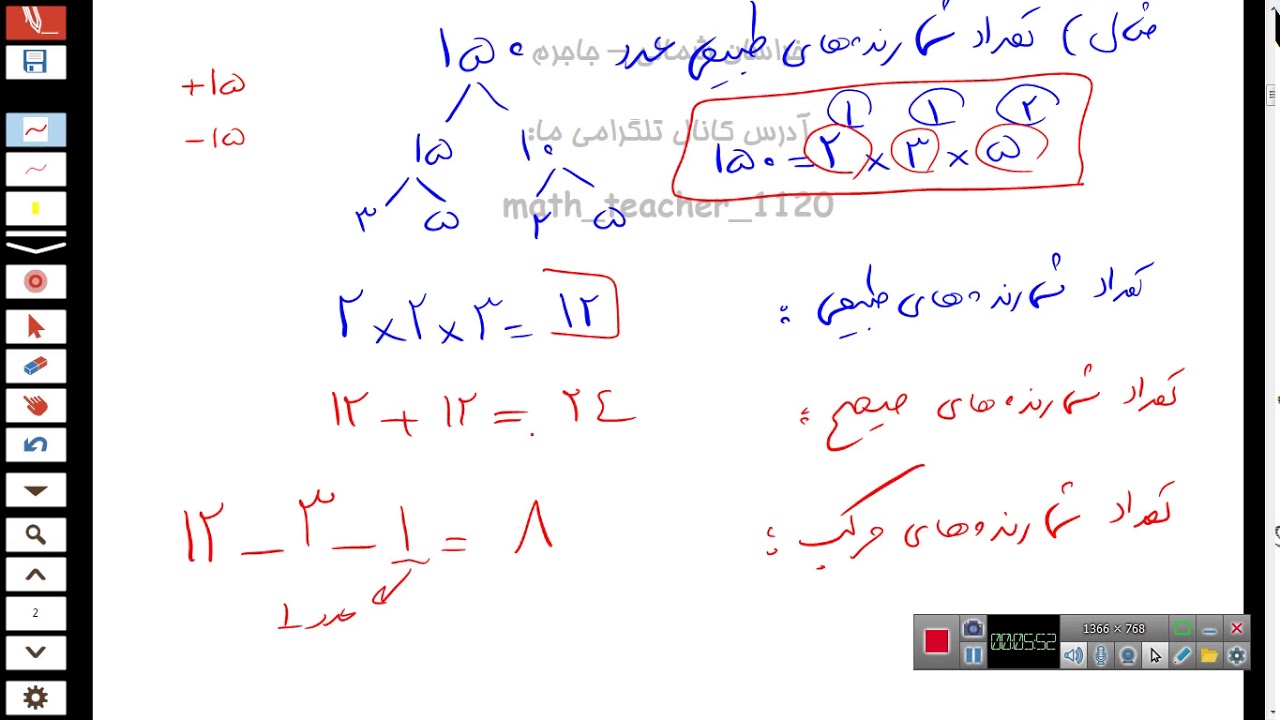 مثال) تعداد شمارنده‌های طبیعی عدد ۱۵۰
خراسان شمالی – جاجرم
آدرس کانال تلگرامی ما:
math_teacher_1120
+۱۵
-۱۵
۱۵ ۱۰
۳ ۵ ۲ ۵
۱ ۱ ۲
۱۵۰ = ۲ × ۳ × ۵
تعداد شمارنده‌های طبیعی :
۲ × ۲ × ۳ = ۱۲
تعداد شمارنده‌های صحیح :
۱۲ + ۱۲ = ۲۴
تعداد شمارنده‌های مرکب :
۱۲ - ۳ - ۱ = ۸
عدد ۱
2
00:05:52
1366 × 768